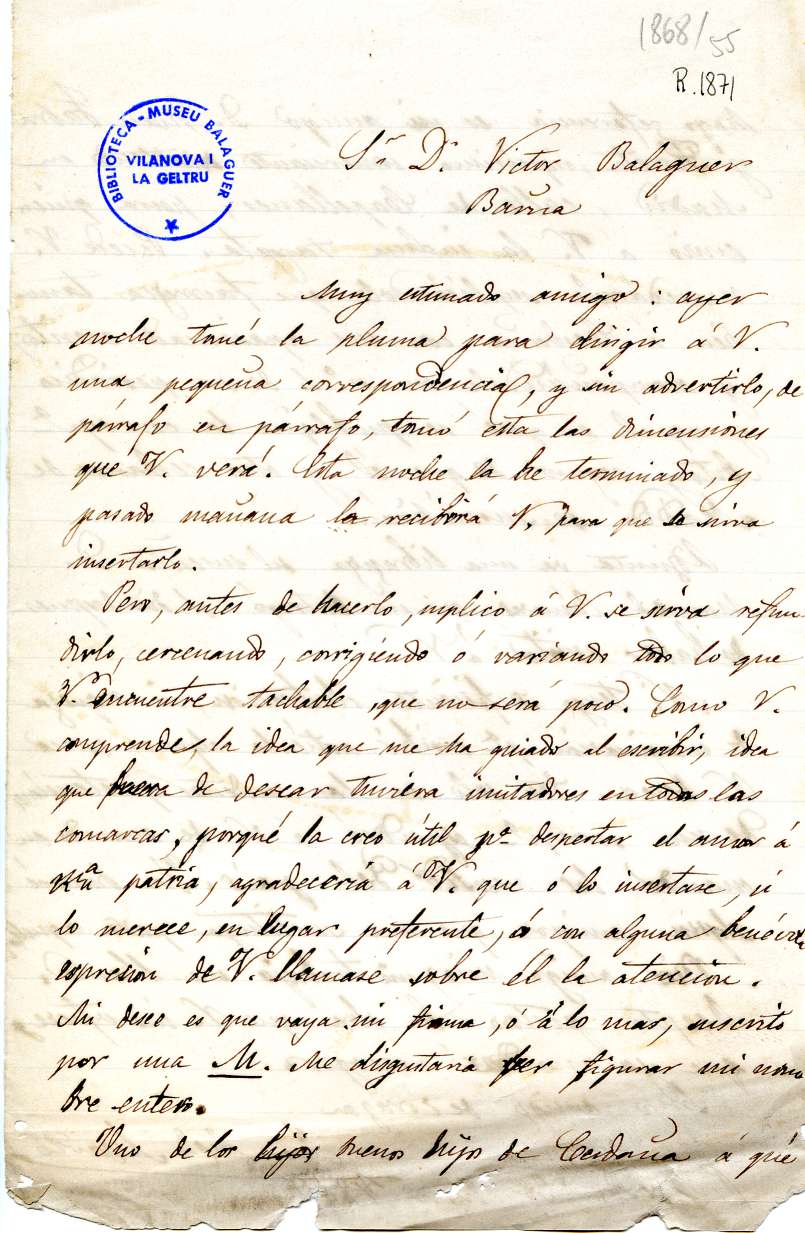 1868/55
R.1871
BIBLIOTECA - MUSEU BALAGUER
VILANOVA I
LA GELTRU
Sr. Dn. Victor Balaguer
Barna
Muy estimado amigo: ayer
noche tomé la pluma para dirigir á V.
una pequeña correspondencia, y sin advertirlo, de
párrafo en párrafo, tomó esta las dimensiones
que V. verá. Esta noche la he terminado, y
pasado mañana la recibirá V. para que se sirva
insertarlo.
Pero, antes de hacerlo, suplico á V. se sirva refun
dirlo, cercenando, corrigiendo ó variando todo lo que
V. encuentre tachable, que no será poco. Como V.
comprende, la idea que me ha guiado al escribir, idea
que fuera de desear tuviera imitadores en todas las
comarcas, porqué la creo útil pa. despertar el amor á
patria, agradeceria á V. que ó lo insertase, si
lo merece, en lugar preferente, ó con alguna benévola
espresion de V. llamase sobre él la atencion.
Mi deseo es que vaya sin firma, ó á lo mas, suscrito
por una M. Me disgustaria ver figurar mi nom
bre entero.
Uno de los hijos buenos hijos de Cerdaña á qué